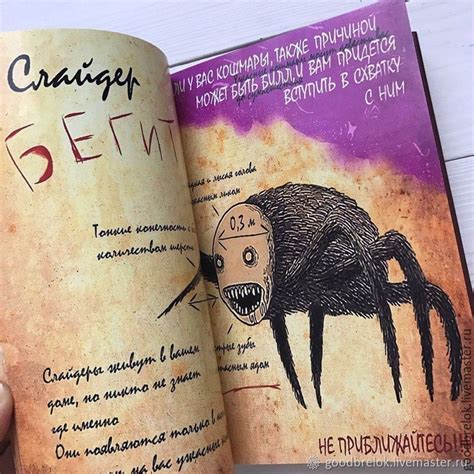 Слайдер
БЕГИТ
Тонкие конечности с
количеством шерсти
Слайдеры живут в вашем
доме, но никто не знает
где именно
Они появляются только в
на вас ужасные
ЛИ У ВАС КОШМАРЫ, ТАКЖЕ ПРИЧИНОЙ
МОЖЕТ БЫТЬ БИЛЛ, И ВАМ ПРИДЕТСЯ
ВСТУПИТЬ В СХВАТКУ
С НИМ
и лысая голова
ужасным ликом
0,3 м
острые зубы
опасным ядом
НЕ ПРИБЛИЖАЙТЕСЬ!
goodbrelok.livemaster.ru
goodbrelok.livemaster.ru